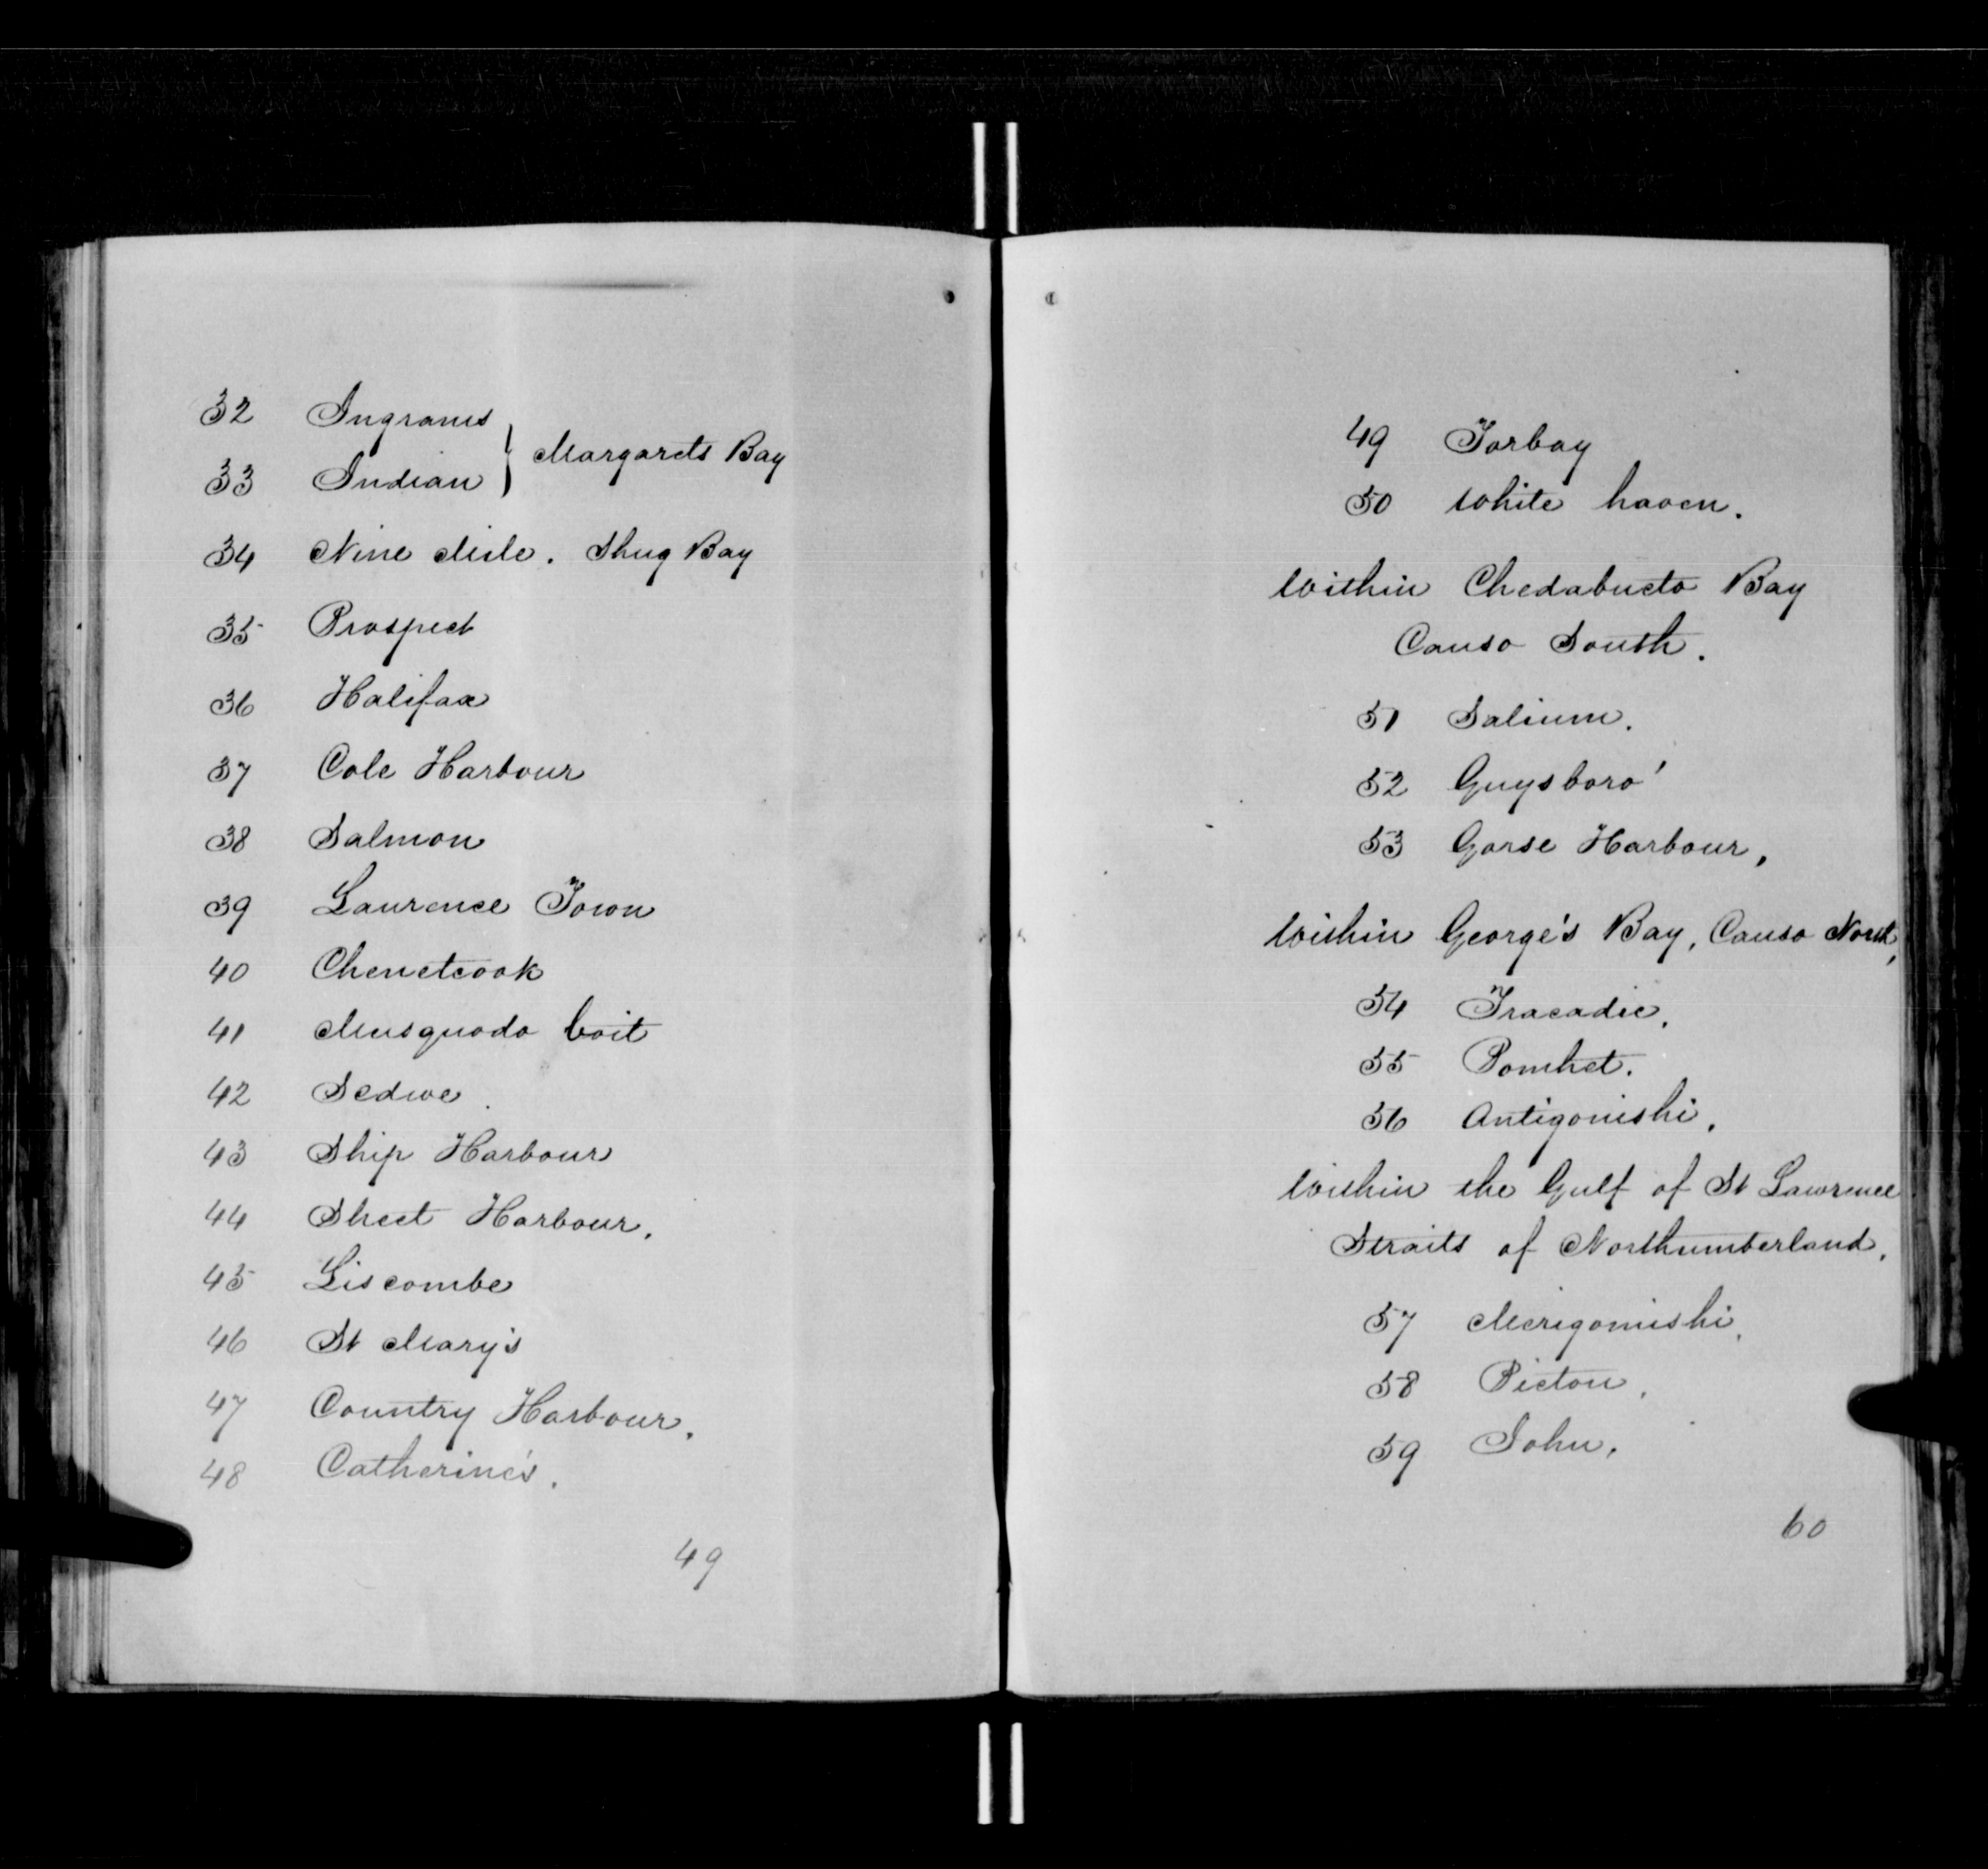 32 Ingrams
} Margarets Bay
33 Indian
34 Nine Mile. Shug Bay
35 Prospect
36 Halifax
37 Cole Harbour
38 Salmon
39 Laurence Town
40 Chenetcook
41 Musquodo boit
42 Sedwe
43 Ship Harbour
44 Sheet Harbour.
45 Liscombe
46 St Mary's
47 Country Harbour.
48 Catherine's.
49
49 Torbay
50 White haven.
Within Chedabucto Bay
Canso South.
51 Salium.
52 Guysboro'
53 Gorse Harbour,
Within George's Bay, Canso North,
54 Tracadie,
55 Pomket.
56 Antigonishi,
Within the Gulf of St Lawrence
Straits of Northumberland,
57 Merigomishi,
58 Pictou,
59 John,
60